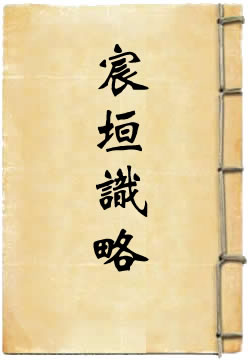 宸垣識略